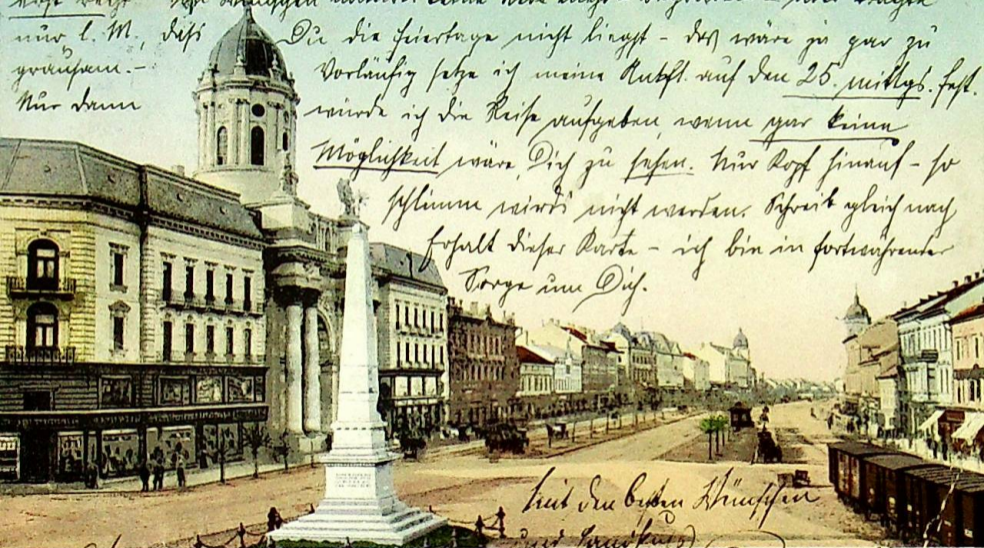 nur l. M., dass Du die Feiertage nicht liegst - das wäre ja gar zu
grausam. - Vorläufig setze ich meine Ankft. auf den 25. mittgs. fest.
Nur dann würde ich die Reise aufgeben, wenn gar keine
Möglichkeit wäre, Dich zu sehen. Nur Kopf hinauf - so
schlimm wird's nicht werden. Schreib gleich nach
Erhalt dieser Karte - ich bin in fortwährender
Sorge um Dich.
Mit den besten Wünschen
und